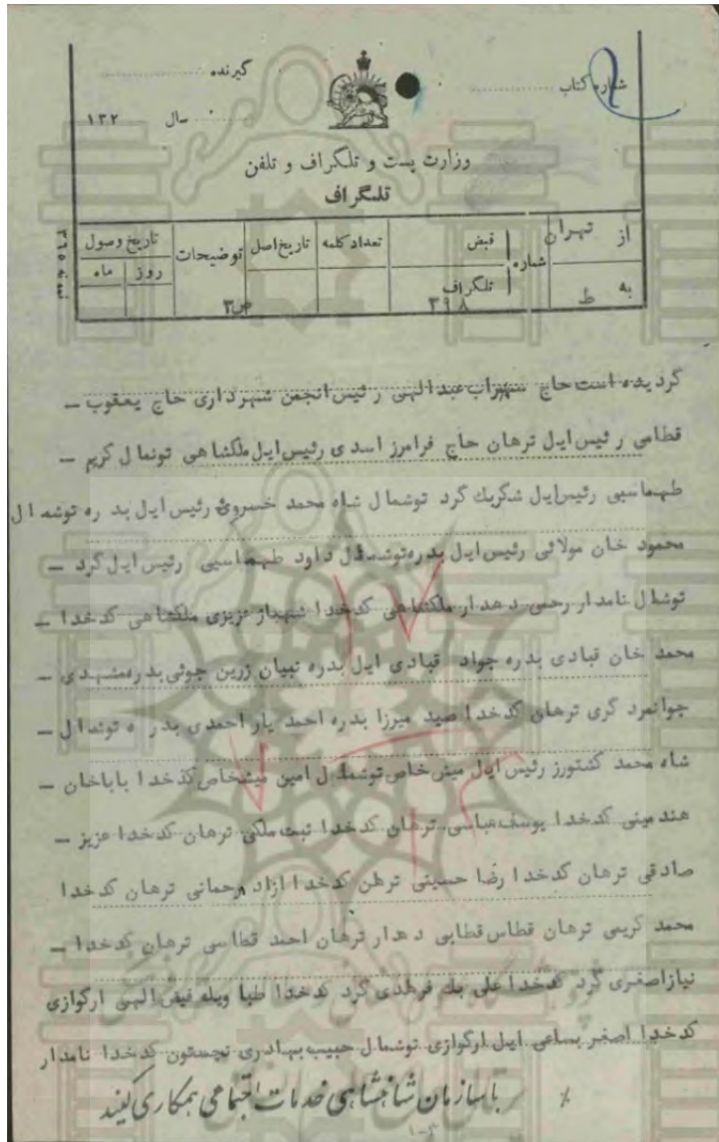 شماره کتاب
گیرنده
سال ۱۳۲
وزارت پست و تلگراف و تلفن
تلگراف
از تهران
به ط
شماره
قبض
تلگراف ۳۹۸
تعداد کلمه
تاریخ اصل
توضیحات
ص۳
تاریخ وصول
روز ماه
گردیده است حاج سهراب عبدالهی رئیس انجمن شهرداری حاج یعقوب –
قطامی رئیس ایل ترهان حاج فرامرز اسدی رئیس ایل ملکشاهی تونمال کریم –
طهماسبی رئیس ایل شگریک گرد توشمال شاه محمد خسروی رئیس ایل بدره توشمال
محمود خان مولائی رئیس ایل بدره توشمال داود طهماسبی رئیس ایل گرد –
توشمال نامدار رحمی دهدار ملکشاهی کدخدا شهباز عزیزی ملکشاهی کدخدا –
محمد خان قبادی بدره جواد قبادی ایل بدره تبیان زرین جوئی بدره مشهدی –
جوانمرد گری ترهان کدخدا صید میرزا بدره احمد یار احمدی بدره توشمال –
شاه محمد کشتورز رئیس ایل میش خاص توشمال امین میشخاص کدخدا باباخان –
هند مینی کدخدا یوسف عباسی ترهان کدخدا ثبت ملکی ترهان کدخدا عزیز –
صادقی ترهان کدخدا رضا حسینی ترهن کدخدا ازاد رحمانی ترهان کدخدا
محمد کریمی ترهان قطاس قطابی دهدار ترهان احمد قطاسی ترهان کدخدا –
نیازاصغری گرد کدخدا علی بک فرهادی گرد کدخدا طبا ویله فیض الهی ارکوازی
کدخدا اصغر بساعی ایل ارکوازی توشمال حبیب بهادری کدخدا نامدار
با سازمان شاهنشاهی خدمات اجتماعی همکاری کنید